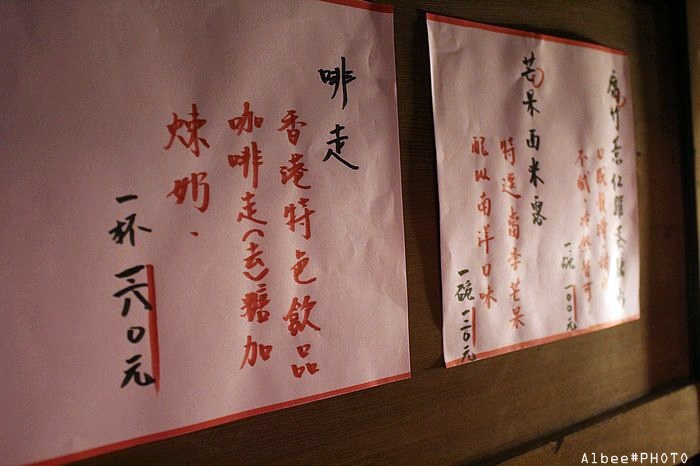 啡走
香港特色飲品
咖啡走(去)糖加
煉奶、
一杯 一六0元
腐竹薏仁
不膩、冷熱皆可
一碗 一00元
芒果西米露
特選當季芒果
配以南洋口味
一碗 一二0元
Albee#PHOTO